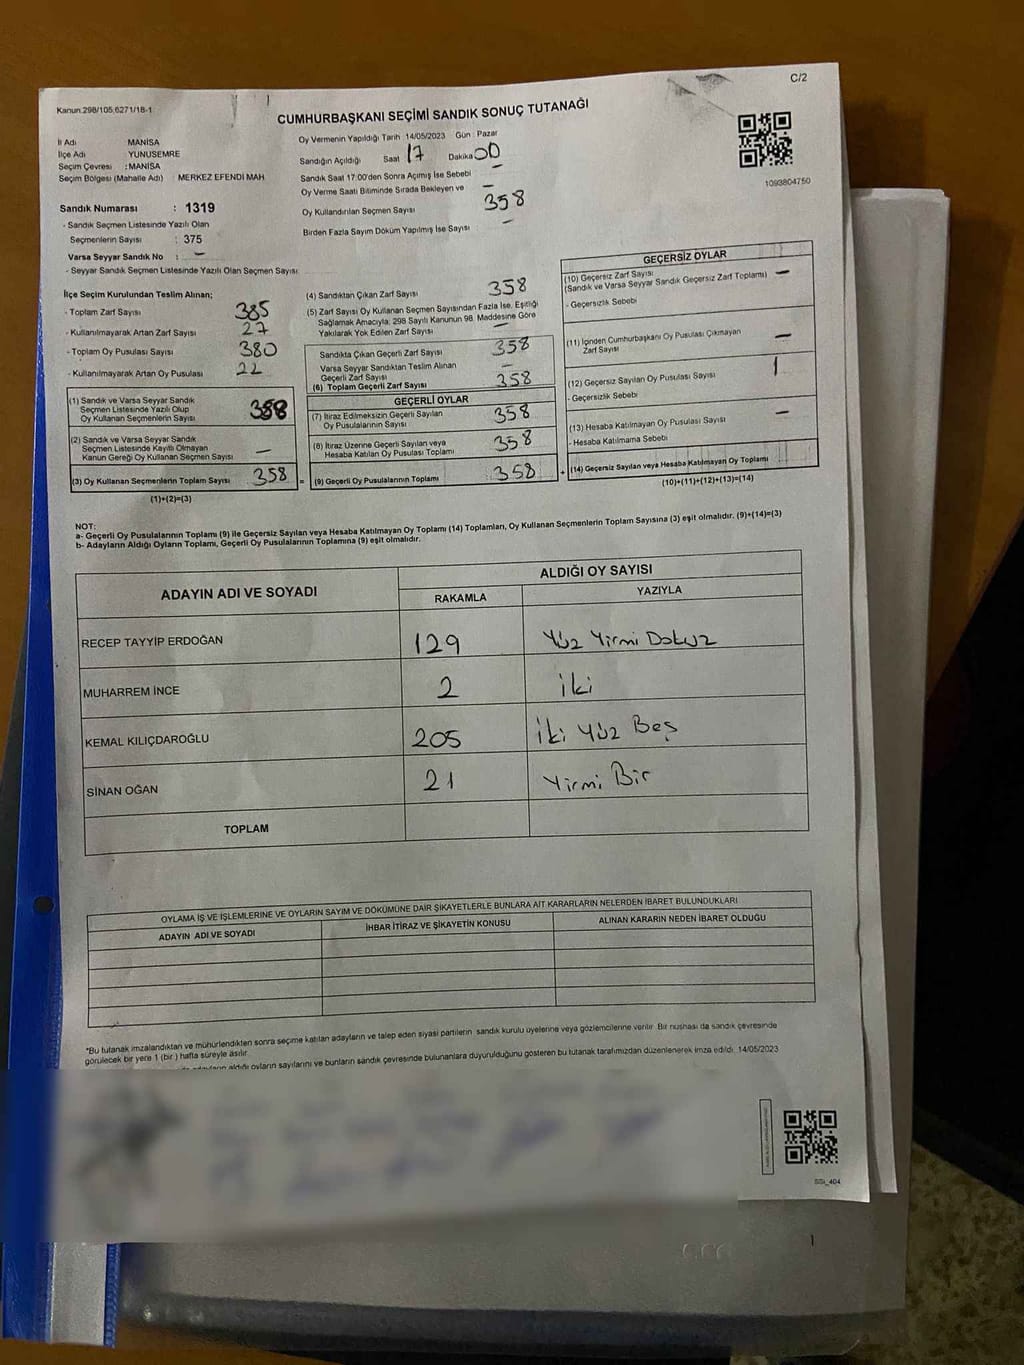 C/2
Kanun.298/105,6271/18-1
CUMHURBAŞKANI SEÇİMİ SANDIK SONUÇ TUTANAĞI
İl Adı MANİSA
İlçe Adı YUNUSEMRE
Seçim Çevresi : MANİSA
Seçim Bölgesi (Mahalle Adı) MERKEZ EFENDİ MAH
Oy Vermenin Yapıldığı Tarih 14/05/2023 Gün : Pazar
Sandığın Açıldığı Saat 17 Dakika 00
Sandık Saat 17:00'den Sonra Açımış İse Sebebi –
Oy Verme Saati Bitiminde Sırada Bekleyen ve –
Oy Kullandırılan Seçmen Sayısı 358
Birden Fazla Sayım Döküm Yapılmış İse Sayısı –
1093804750
Sandık Numarası : 1319
- Sandık Seçmen Listesinde Yazılı Olan
Seçmenlerin Sayısı : 375
Varsa Seyyar Sandık No : –
- Seyyar Sandık Seçmen Listesinde Yazılı Olan Seçmen Sayısı
İlçe Seçim Kurulundan Teslim Alınan;
- Toplam Zarf Sayısı 385
- Kullanılmayarak Artan Zarf Sayısı 27
- Toplam Oy Pusulası Sayısı 380
- Kullanılmayarak Artan Oy Pusulası 22
(1) Sandık ve Varsa Seyyar Sandık
Seçmen Listesinde Yazılı Olup
Oy Kullanan Seçmenlerin Sayısı 358
(2) Sandık ve Varsa Seyyar Sandık
Seçmen Listesinde Kayıtlı Olmayan
Kanun Gereği Oy Kullanan Seçmen Sayısı –
(3) Oy Kullanan Seçmenlerin Toplam Sayısı 358 =
(1)+(2)=(3)
(4) Sandıktan Çıkan Zarf Sayısı 358
(5) Zarf Sayısı Oy Kullanan Seçmen Sayısından Fazla İse, Eşitliği
Sağlamak Amacıyla; 298 Sayılı Kanunun 98. Maddesine Göre
Yakılarak Yok Edilen Zarf Sayısı –
Sandıkta Çıkan Geçerli Zarf Sayısı 358
Varsa Seyyar Sandıktan Teslim Alınan
Geçerli Zarf Sayısı –
(6) Toplam Geçerli Zarf Sayısı 358
GEÇERLİ OYLAR
(7) İtiraz Edilmeksizin Geçerli Sayılan
Oy Pusulalarının Sayısı 358
(8) İtiraz Üzerine Geçerli Sayılan veya
Hesaba Katılan Oy Pusulası Toplamı 358
(9) Geçerli Oy Pusulalarının Toplamı : 358 +
GEÇERSİZ OYLAR
(10) Geçersiz Zarf Sayısı
(Sandık ve Varsa Seyyar Sandık Geçersiz Zarf Toplamı) –
- Geçersizlik Sebebi
(11) İçinden Cumhurbaşkanı Oy Pusulası Çıkmayan
Zarf Sayısı –
(12) Geçersiz Sayılan Oy Pusulası Sayısı 1
- Geçersizlik Sebebi
(13) Hesaba Katılmayan Oy Pusulası Sayısı –
- Hesaba Katılmama Sebebi
(14) Geçersiz Sayılan veya Hesaba Katılmayan Oy Toplamı
(10)+(11)+(12)+(13)=(14)
NOT:
a- Geçerli Oy Pusulalarının Toplamı (9) ile Geçersiz Sayılan veya Hesaba Katılmayan Oy Toplamı (14) Toplamları, Oy Kullanan Seçmenlerin Toplam Sayısına (3) eşit olmalıdır. (9)+(14)=(3)
b- Adayların Aldığı Oyların Toplamı, Geçerli Oy Pusulalarının Toplamına (9) eşit olmalıdır.
ADAYIN ADI VE SOYADI
ALDIĞI OY SAYISI
RAKAMLA YAZIYLA
RECEP TAYYİP ERDOĞAN 129 Yüz Yirmi Dokuz
MUHARREM İNCE 2 İki
KEMAL KILIÇDAROĞLU 205 İki Yüz Beş
SİNAN OĞAN 21 Yirmi Bir
TOPLAM
OYLAMA İŞ VE İŞLEMLERİNE VE OYLARIN SAYIM VE DÖKÜMÜNE DAİR ŞİKAYETLERLE BUNLARA AİT KARARLARIN NELERDEN İBARET BULUNDUKLARI
ADAYIN ADI VE SOYADI İHBAR İTİRAZ VE ŞİKAYETİN KONUSU ALINAN KARARIN NEDEN İBARET OLDUĞU
*Bu tutanak imzalandıktan ve mühürlendikten sonra seçime katılan adayların ve talep eden siyasi partilerin sandık kurulu üyelerine veya gözlemcilerine verilir. Bir nushası da sandık çevresinde
görülecek bir yere 1 (bir) hafta süreyle asılır.
adayların aldığı oyların sayılarını ve bunların sandık çevresinde bulunanlara duyurulduğunu gösteren bu tutanak tarafımızdan düzenlenerek imza edildi. 14/05/2023
SSt_404